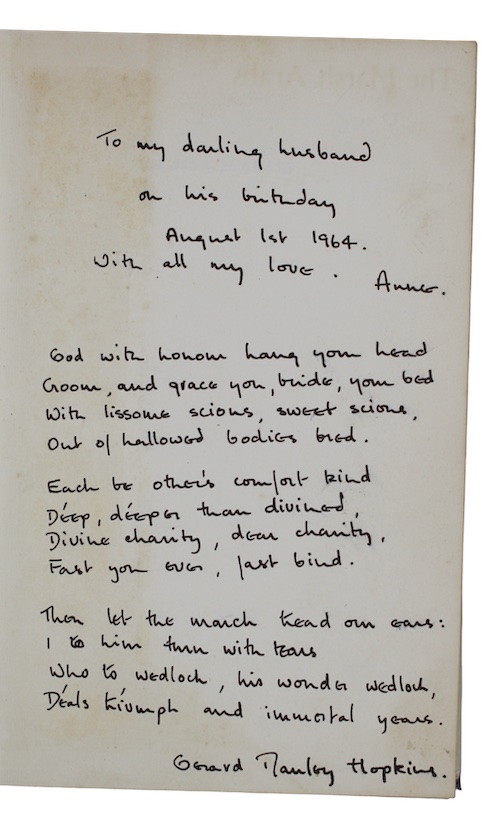 To my darling husband
on his birthday
August 1st 1964.
With all my love.
Anne.
God with honour hang your head
Groom, and grace you, bride, your bed
With lissome scions, sweet scions,
Out of hallowed bodies bred.
Each be other's comfort kind
Déep, déeper than divined,
Divine charity, dear charity,
Fast you ever, fast bind.
Then let the march tread our ears:
I to him turn with tears
Who to wedlock, his wonder wedlock,
Déals tríumph and immortal years.
Gerard Manley Hopkins.